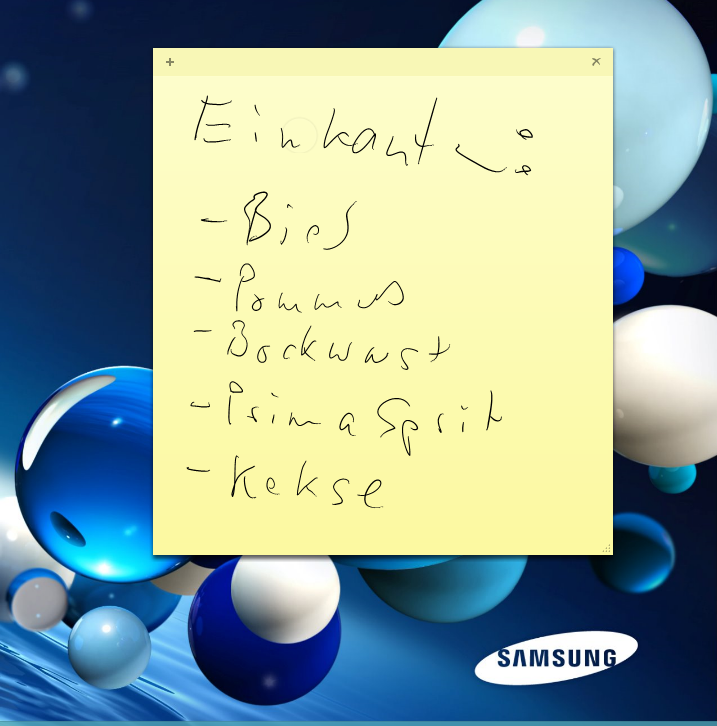 Einkauf :
- Bier
- Pommes
- Bockwurst
- Prima Sprit
- Kekse
SAMSUNG